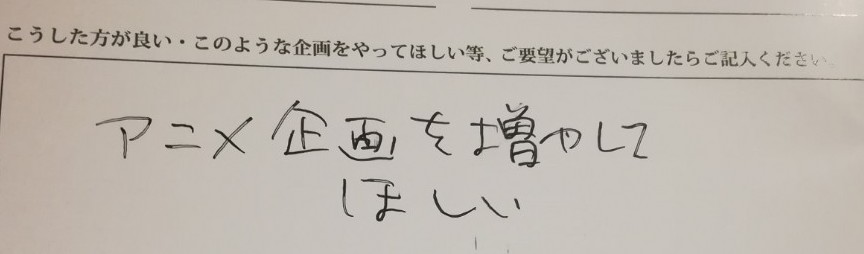 こうした方が良い・このような企画をやってほしい等、ご要望がございましたらご記入ください。
アニメ企画を増やして
ほしい